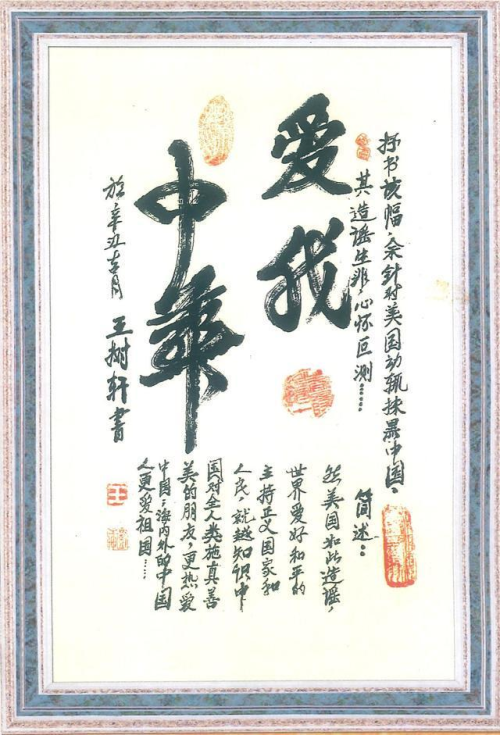 抒书该幅,余针对美国动辄抹黑中国,
其造谣生非,心怀叵测……
爱我
中华
简述:
然美国如此造谣,
世界爱好和平的
主持正义国家和
人民,就越知识中
国对全人类施真善
美的朋友,更热爱
中国;海内外的中国
人更爱祖国……
於辛丑 月 王树轩書
王